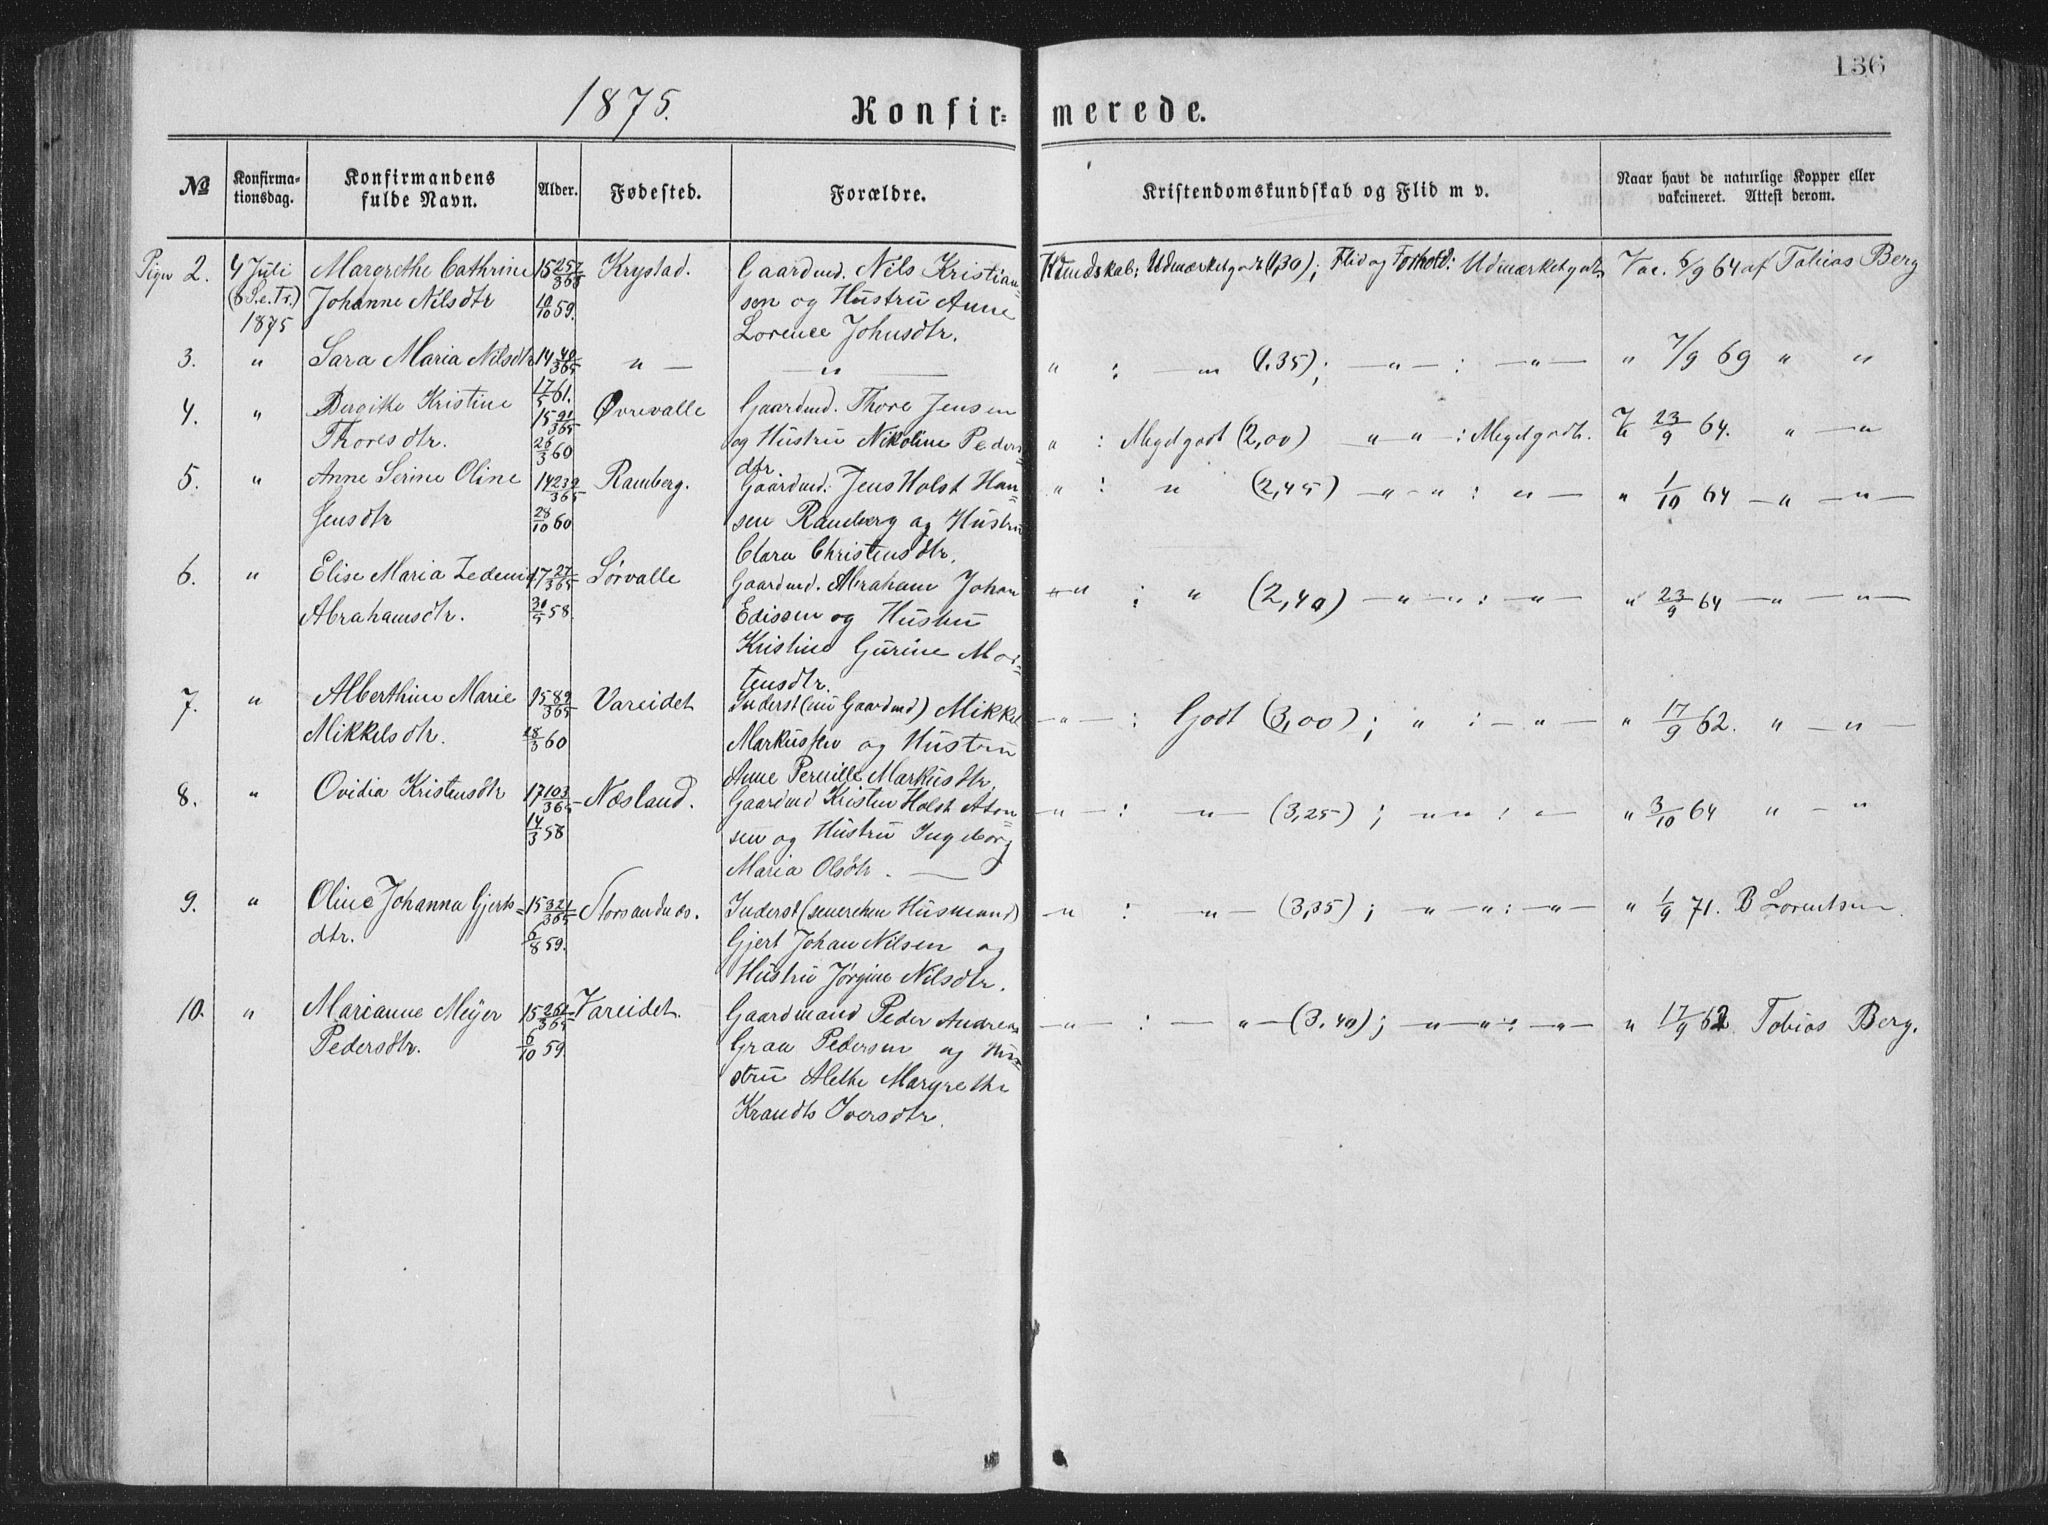 136
1875.
Konfir= merede.
No
Konfirma-
tionsdag.
Konfirmandens
fulde Navn.
Alder.
Fødested.
Forældre.
Kristendomskundskab og Flid m v.
Naar havt de naturlige Kopper eller
vakcineret. Attest derom.
Piger 2. 4 Juli Margrethe Cathrine 15 257/365 Krystad. Gaardmd. Nils Kristian= Kundskab: Udmærketgodt (1,30); Flid og Forhold: Udmærketgodt. Vac. 6/9 64 af Tobias Berg
(6 S. e. Tr.) Johanne Nilsdtr 10/10 59. sen og Hustru Anne
1875 Lorence Johnsdtr.
3. " Sara Maria Nilsdtr 14 40/365 " — — " — " : — " (1.35); — " — : — " — " 7/9 69 " "
17/5 61.
4. " Bergithe Kristine 15 91/365 Øvrevalle Gaardmd. Thore Jensen
Thoresdtr. 26/3 60 og Hustru Nikoline Peders= " : Megetgodt (2,00) — " " — : Megetgodt. 23/9 64. " — "
dtr.
5. " Anne Serine Oline 14 239/365 Ramberg. Gaardmd. Jens Holst Han= " : " (2,45) — " - " : " — " 1/10 64 — " — " —
Jensdtr 28/10 60 sen Ramberg og Hustru
Clara Christensdtr.
6. " Elise Maria 17 27/365 Sørvalle Gaardmd. Abraham Johan " — " : " (2,40) — " — " : — " — " 23/9 64 — " — " —
Abrahamsdtr. 30/5 58. Edissen og Hustru
Kristine Gurine Mor=
tensdtr.
7. " Alberthine Marie 15 89/365 Vareidet Inderst (nu Gaardmd) Mikkel — " — : Godt (3,00); " : — " — " 17/9 62. " — " —
Mikkelsdtr. 28/3 60 Markussen og Hustru
Anne Pernille Markusdtr.
8. " Ovidia Kristensdtr 17 103/365 Næsland. Gaardmd Kristen Holst — " — : — " — (3,25); — " " : " — " 3/10 64 " — "
14/3 58 sen og Hustru Ingeborg
Maria Olsdtr. —
9. " Oline Johanna Gjerts= 15 321/365 Storsandnes. Inderst (senerehen Husmand) — " : — " — (3,35); — " — " : — " — " 1/9 71. B Lorentsen.
dtr. 6/8 59. Gjert Johan Nilsen og
Hustru Jørgine Nilsdtr.
10. " Marianne Meyer 15 260/365 Vareidet. Gaardmand Peder Andreas — " — : — " — (3.40); — " — " : — " — " 17/9 62. Tobias Berg.
Pedersdtr. 6/10 59. Grau Pedersen og Hu=
stru Alethe Margrethe
Krandts Iversdtr.